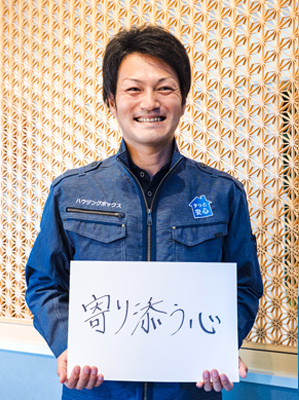 ハウジングボックス
ずっと
安心
寄り添う心